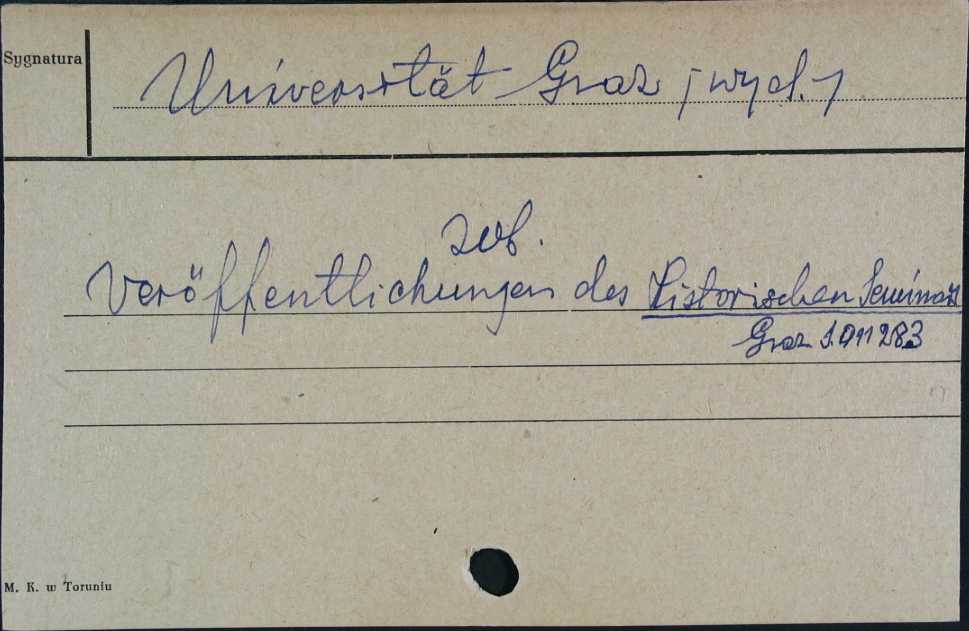 Sygnatura
Universität Graz /wyd./
zob.
Veröffentlichungen des Historischen Seminars
Graz S.011283
M. K. w Toruniu